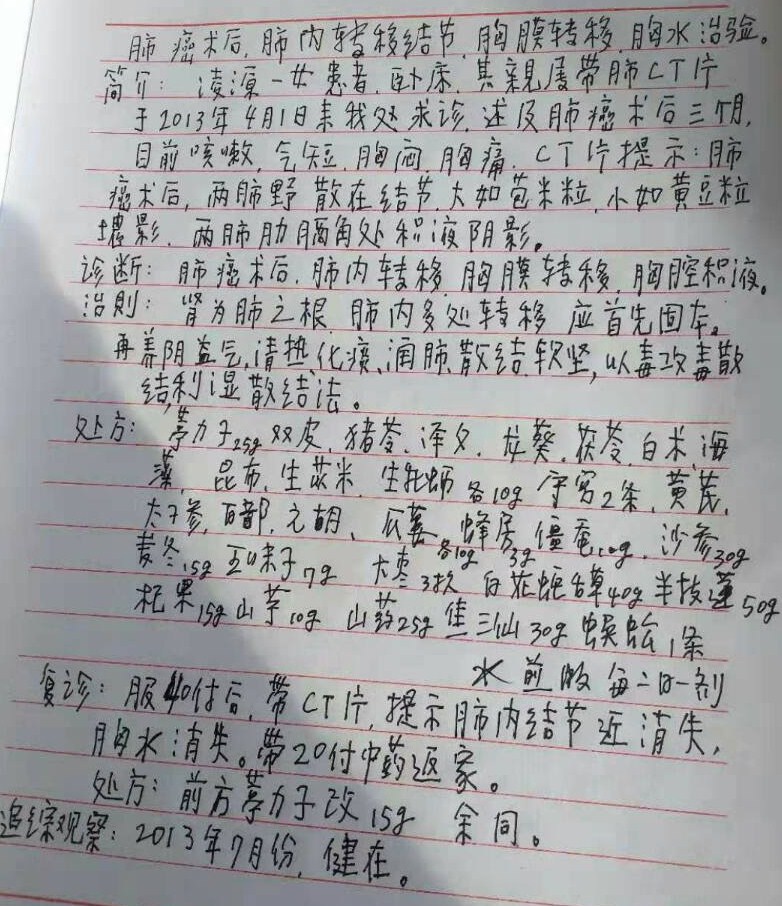 肺癌术后,肺内转移结节,胸膜转移,胸水治验。
简介: 凌源一女患者,卧床,其亲属带肺CT片
于2013年4月1日来我处求诊,述及肺癌术后三个月,
目前咳嗽,气短,胸闷,胸痛,CT片提示:肺
癌术后,两肺野散在结节,大如苞米粒,小如黄豆粒
增影,两肺肋膈角处积液阴影。
诊断: 肺癌术后,肺内转移,胸膜转移,胸腔积液。
治则: 肾为肺之根,肺内多处转移,应首先固本。
再养阴益气,清热化痰,润肺散结软坚,以毒攻毒散
结,利湿散结法。
处方: 葶力子25g 双皮,猪苓,泽夕,龙葵,茯苓,白术,海
藻,昆布,生苡米,生牡蛎各10g 守宫2条,黄芪,
太子参,百部,元胡、瓜蒌各10g 蜂房3g 僵蚕10g,沙参30g
麦冬15g 五味子7g 大枣3枚 白花蛇舌草40g 半枝莲50g
杞果15g 山芋10g 山药25g 焦三仙30g 蜈蚣1条
水煎服 每二日一剂
复诊: 服40付后,带CT片,提示肺内结节近消失,
胸水消失。带20付中药返家。
处方: 前方葶力子改15g 余同。
追综观察: 2013年7月份,健在。